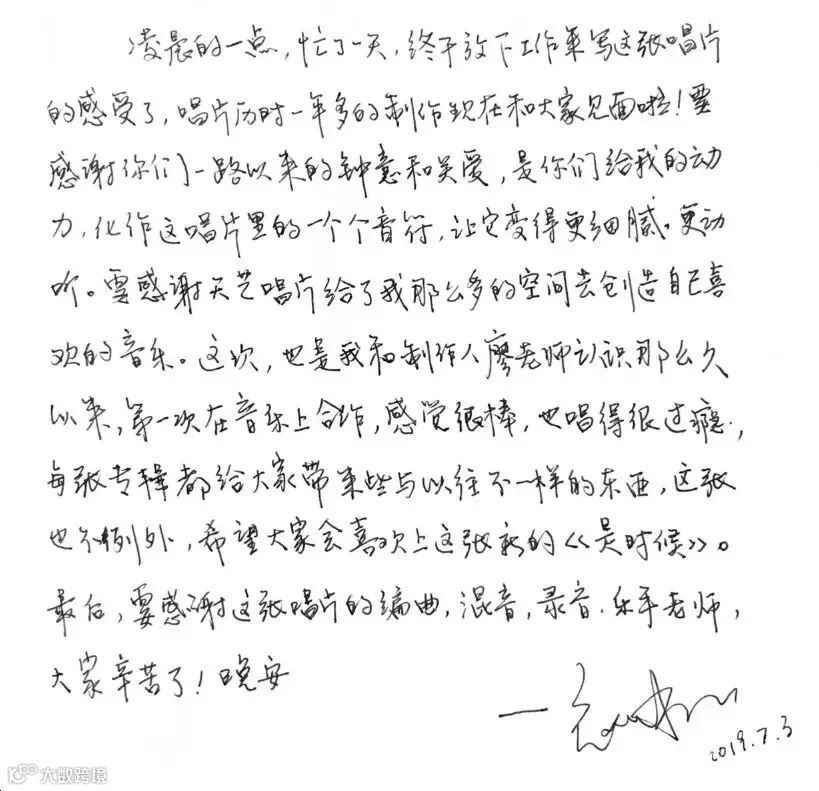 凌晨的一点，忙了一天，终于放下工作来写这张唱片
的感受了，唱片历时一年多的制作现在和大家见面啦！要
感谢你们一路以来的钟意和关爱，是你们给我的动
力，化作这唱片里的一个个音符，让它变得更细腻。更动
听。要感谢天艺唱片给了我那么多的空间去创造自己喜
欢的音乐。这次，也是我和制作人廖老师认识那么久
以来，第一次在音乐上合作，感觉很棒，也唱得很过瘾，
每张专辑都给大家带来些与以往不一样的东西，这张
也不例外，希望大家会喜欢上这张新的《是时候》。
最后，要感谢这张唱片的编曲，混音，录音．乐手老师，
大家辛苦了！晚安
2019.7.3
大数跨境